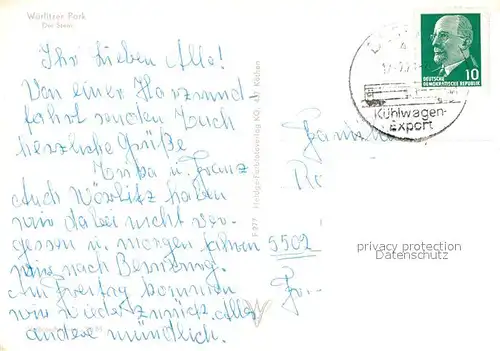 Wörlitzer Park
Der Stein
Ihr Lieben Alle!
Von einer Harzrund-
fahrt senden Euch
herzliche Grüße
u. Franz
Auch Wörlitz haben
wir dabei nicht ver-
gessen u. morgen fahren
wir nach Bernburg.
Am Freitag kommen
wir wieder zurück. Alles
andere mündlich.
DEUTSCHE
DEMOKRATISCHE REPUBLIK
10
Kühlwagen-
Export
Familie
5502
privacy protection
AKPOOL.DE